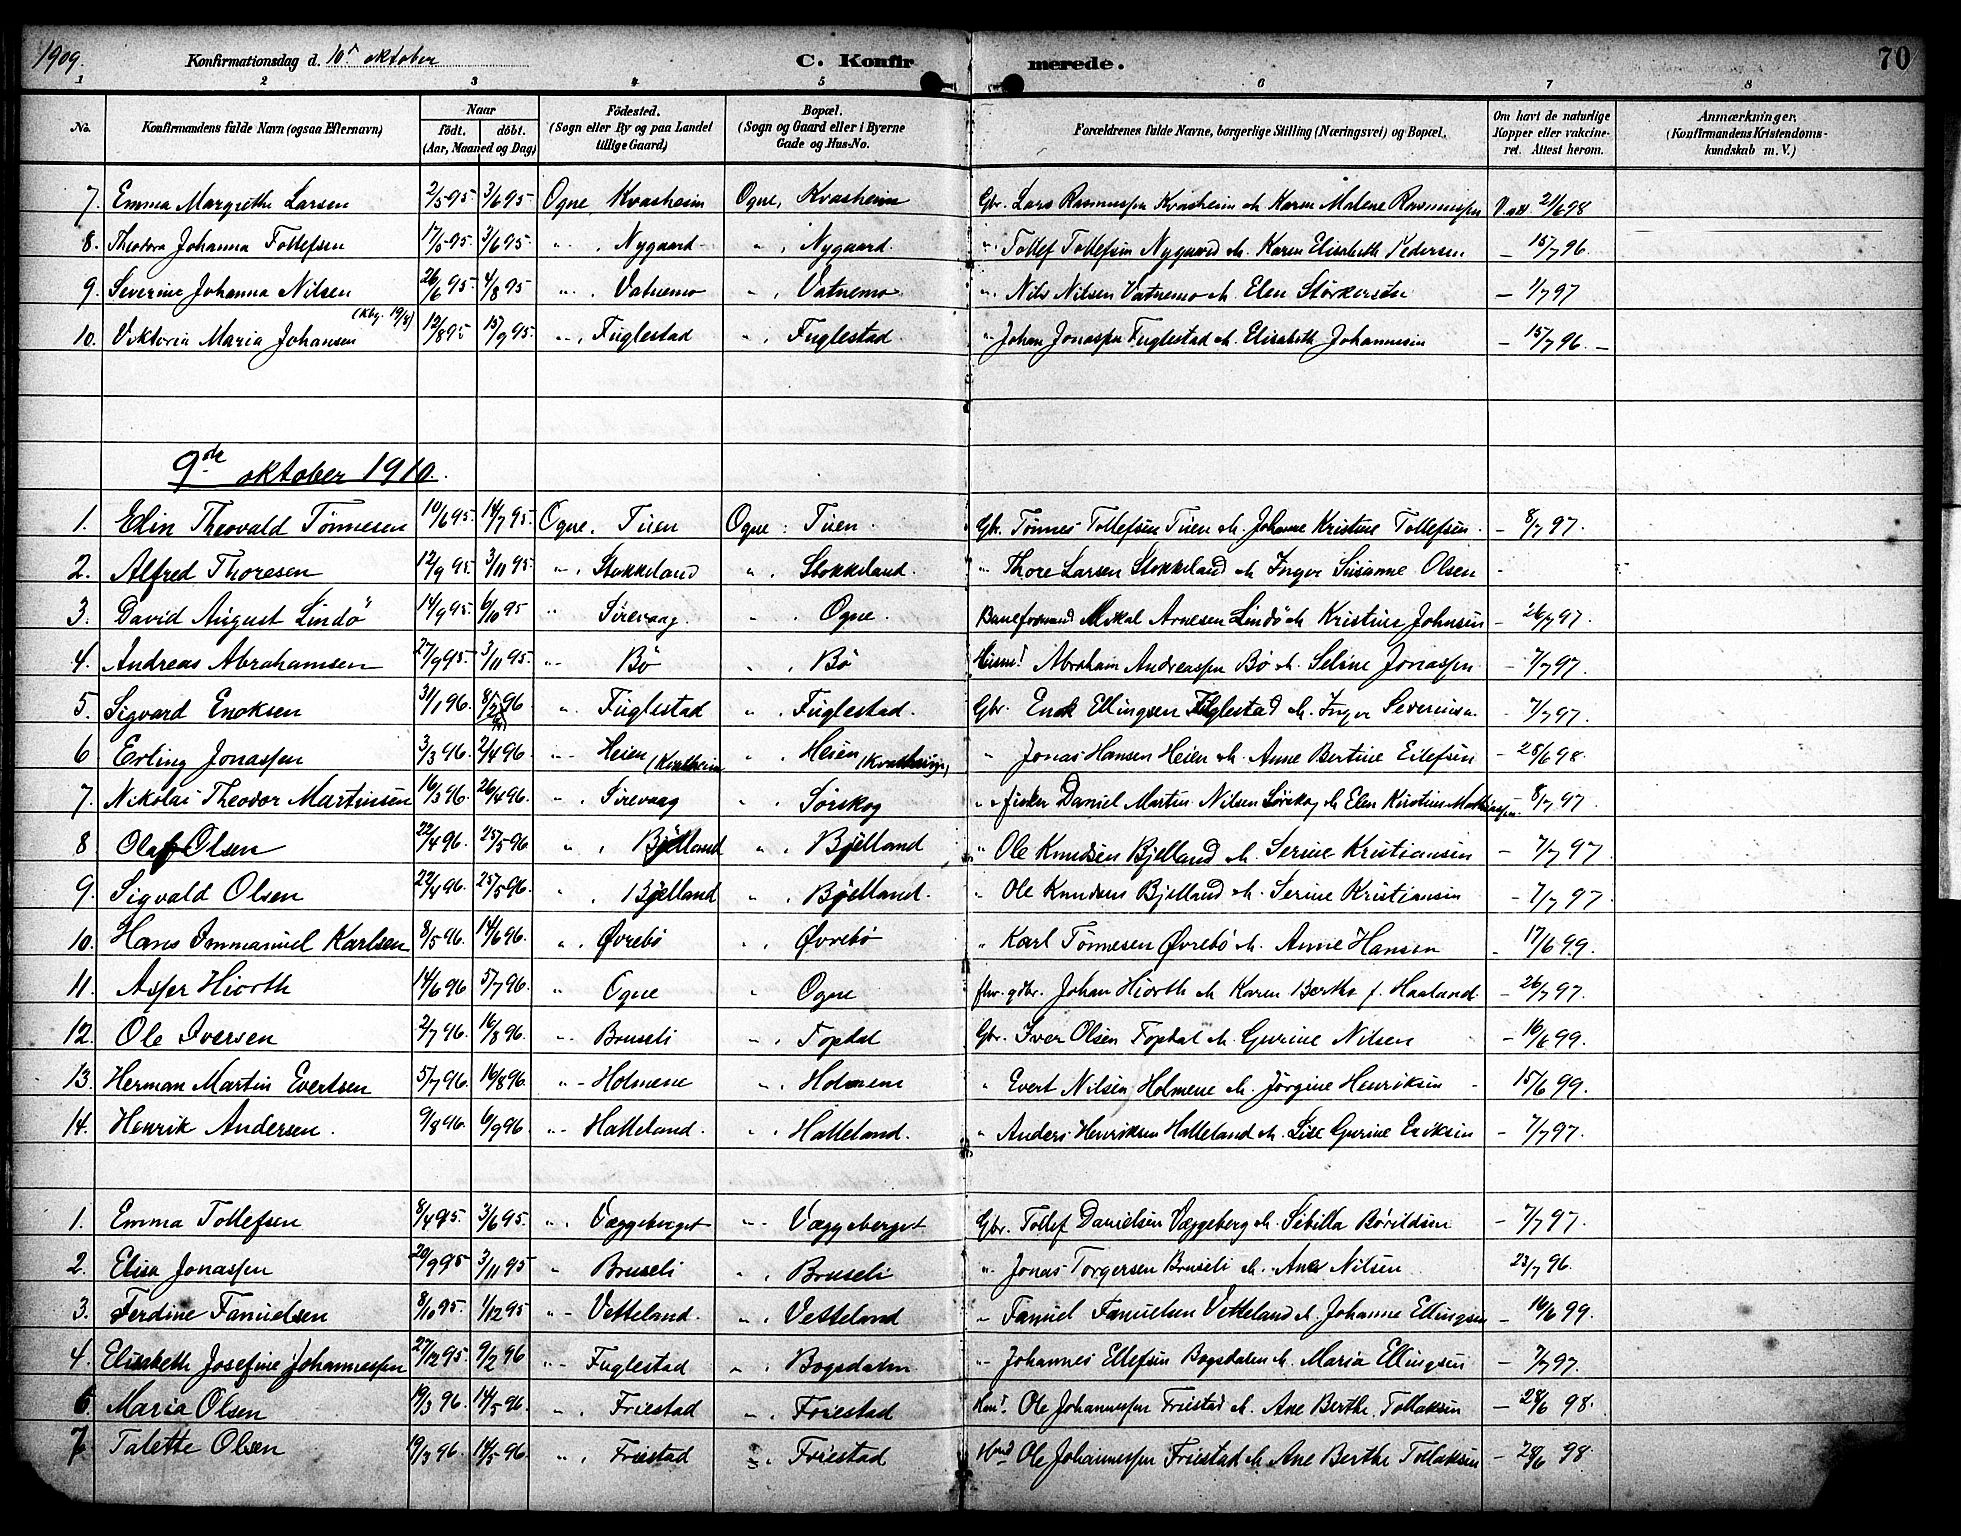 1909. Konfirmationsdag d. 10de oktober C. Konfirmerede. 70
1 2 3 4 5 6 7 8
No. Konfirmandens fulde Navn (ogsaa Efternavn) Naar födt. döbt. (Aar, Maaned og Dag) Födested. (Sogn eller By og paa Landet tillige Gaard) Bopæl. (Sogn og Gaard eller i Byerne Gade og Hus-No. Forældrenes fulde Navne, borgerlige Stilling (Næringsvei) og Bopæl. Om havt de naturlige Kopper eller vakcineret. Attest herom. Anmærkninger. (Konfirmandens Kristendomskundskab m. V.)
7. Emma Margrethe Larsen 2/5 95 3/6 95 Ogne, Kvasheim Ogne, Kvasheim Gbr. Lars Rasmussen Kvasheim & Karen Malene Rasmussen V. att. 21/6 98
8. Theodora Johanna Tollefsen 17/5 95 3/6 95 " , Nygaard " , Nygaard. " Tollef Tollefsen Nygaard & Karen Elisabeth Pedersen – 15/7 96
9. Severine Johanna Nilsen 26/6 95 4/8 95 " , Vatnemo " , Vatnemo " Nils Nilsen Vatnemo & Elen Störkersen – 1/7 97
(Kbg. 19/8)
10. Viktoria Maria Johansen 12/8 95 15/9 95 " , Fuglestad " , Fuglestad. " Johan Jonassen Fuglestad & Elisabeth Johannesen – 15/7 96 –
9de oktober 1910.
1. Elin Theovald Tönnesen 10/6 95 14/7 95 Ogne, Tuen Ogne : Tuen. Gbr. Tönnes Tollefsen Tuen & Johanne Kristine Tollefsen – 8/7 97.
2. Alfred Thoresen 12/9 95 3/11 95 " , Stokkeland " , Stokkeland. " Thore Larsen Stokkeland & Inger Susanne Olsen -
3. David August Lindö 14/9 95 6/10 95 " Sirevaag. " . Ogne. Baneformand Mikal Arnesen Lindö & Kristine Johnsen – 26/7 97.
4. Andreas Abrahamsen 27/9 95 3/11 95 " Bö " . Bö Abraham Andreassen Bö & Seline Jonassen – 7/7 97.
5. Sigvard Enoksen 31/1 96 8/2 96 " Fuglestad " . Fuglestad. Gbr. Enok Ellingsen Fuglestad & Inger – 7/7 97.
6 Erling Jonassen 3/3 96 2/4 96 " Heien (Kvasheim " . Heien (Kvasheim) " Jonas Hansen Heien & Anne Bertine Eilefsen – 28/6 98.
7. Nikolai Theodor Martinsen 16/3 96 26/4 96 " . Sirevaag " . Sörskog " fisker Daniel Martin Nilsen Sörskog & Elen Kirstine Mathiassen – 8/7 97.
8 Olaf Olsen 22/4 96 25/5 96 " , Bjelland " . Bjelland " Ole Knudsen Bjelland & Serine Kristiansen – 7/7 97
9. Sigvald Olsen 22/4 96 25/5 96 " , Bjelland " . Bjelland. " Ole Knudsen Bjelland & Serine Kristiansen – 7/7 97
10. Hans Immanuel Karlsen 8/5 96. 14/6 96. " . Øvrebö " . Øvrebö " Karl Tönnesen Øvrebö & Anne Hansen – 17/6 99.
11. Asser Hiorth 14/6 96 5/7 96. " Ogne " Ogne fhv. gbr. Johan Hiorth & Karen Berthe f. Haaland. – 26/7 97.
12. Ole Iversen 2/7 96. 16/8 96. " Bruseli " . Topdal Gbr. Iver Olsen Topdal & Gurine Nilsen – 16/6 99.
13. Herman Martin Evertsen 5/7 96. 16/8 96. " Holmene " . Holmene " Evert Nilsen Holmene & Jörgine Henriksen – 15/6 99.
14. Henrik Andersen. 9/8 96. 6/9 96 " Hatteland. " . Hatteland. " Anders Henriksen Hatteland & Lise Gurine Eriksen – 7/7 97.
1. Emma Tollefsen 8/4 95. 3/6 95. " . Væggeberget " Væggeberget Gbr. Tollef Danielsen Væggeberg & Sibilla Börildsen – 7/7 97.
2. Elisa Jonassen 20/9 95 3/11 95 " Bruseli " , Bruseli " Jonas Torgersen Bruseli & Ane Nilsen 23/7 96.
3. Ferdine Fanuelsen 8/10 95. 1/12 95 " Vetteland. " . Vetteland " Fanuel Fanuelsen Vetteland & Johanne Ellingsen – 16/6 99.
4. Elisabeth Josefine Johannessen 27/12 95. 9/2 96 " Fuglestad " . Bogsdalen " Johannes Ellefsen Bogsdalen & Maria Ellingsen – 7/7 97.
6. Maria Olsen 19/3 96. 14/5 96. " . Friestad " . Friestad Ole Johannessen Friestad & Ane Berthe Tollaksen – 28/6 98.
7. Talette Olsen 19/3 96. 14/5 96 " , Friestad " . Friestad Ole Johannessen Friestad & Ane Berthe Tollaksen – 28/6 98